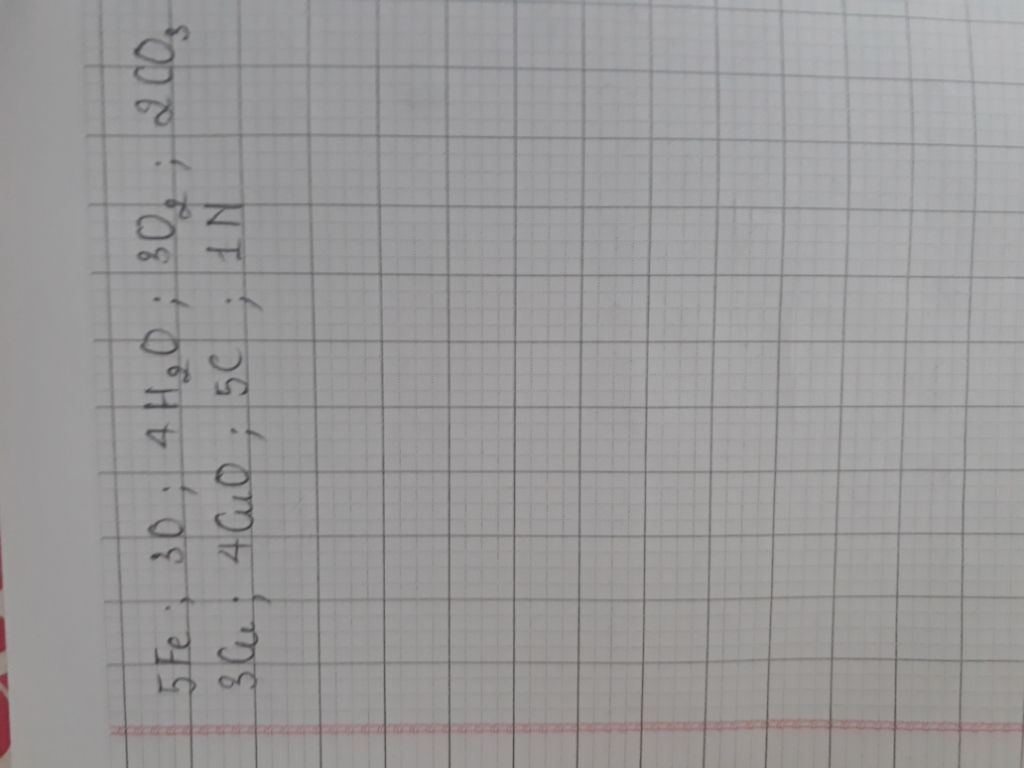 5Fe ; 3O ; 4H₂O ; 3O₂ ; 2CO₃
3Cu ; 4CuO ; 5C ; 1N